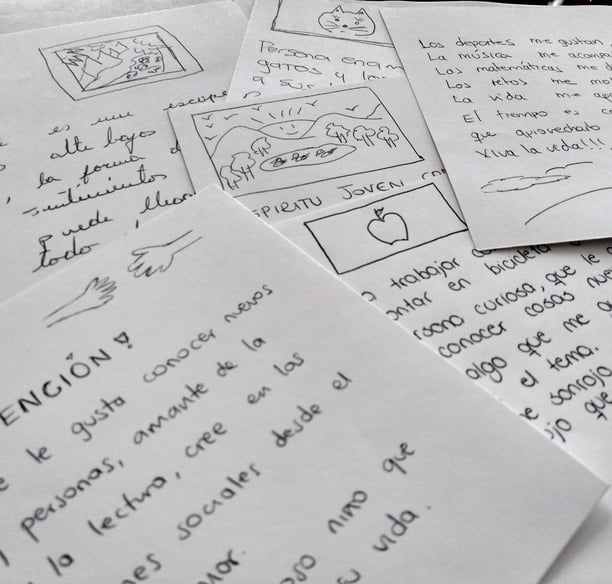 es un escape
alti bajos
la forma d
sentimientos
puede llevar
todo
Persona enam
gatos
a su
y
ESPIRITU JOVEN
Los deportes me gustan
La música me acomp
Los matemáticas me d
Los retos me mo
La vida me ap
El tiempo es
que aprovechado
Viva la vida!!!
trabajar
ontar en bicicleta
rsona curiosa, que le
conocer cosas nue
algo que me g
el tema.
e sonrojo
ojo que
ENCIÓN!
e le gusta conocer nuevos
personas, amante de la
la lectura, cree en las
nes sociales desde el
mor.
oso niño que
su vida.